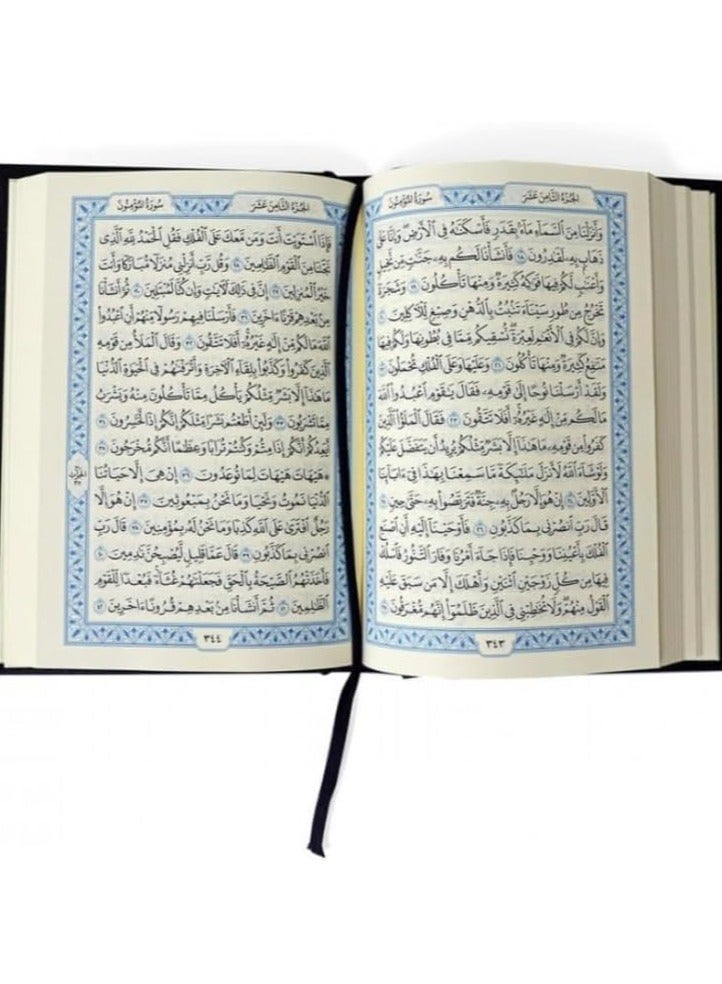 الجزء الثامن عشر
سورة المؤمنون
وَأَنزَلْنَا مِنَ السَّمَاءِ مَاءً بِقَدَرٍ فَأَسْكَنَّاهُ فِي الْأَرْضِ وَإِنَّا عَلَى
ذَهَابٍ بِهِ لَقَادِرُونَ ١٨ فَأَنشَأْنَا لَكُم بِهِ جَنَّاتٍ مِّن نَّخِيلٍ
وَأَعْنَابٍ لَّكُمْ فِيهَا فَوَاكِهُ كَثِيرَةٌ وَمِنْهَا تَأْكُلُونَ ١٩ وَشَجَرَةً
تَخْرُجُ مِن طُورِ سَيْنَاءَ تَنبُتُ بِالدُّهْنِ وَصِبْغٍ لِّلْآكِلِينَ ٢٠
وَإِنَّ لَكُمْ فِي الْأَنْعَامِ لَعِبْرَةً نُّسْقِيكُم مِّمَّا فِي بُطُونِهَا وَلَكُمْ فِيهَا
مَنَافِعُ كَثِيرَةٌ وَمِنْهَا تَأْكُلُونَ ٢١ وَعَلَيْهَا وَعَلَى الْفُلْكِ تُحْمَلُونَ ٢٢
وَلَقَدْ أَرْسَلْنَا نُوحًا إِلَى قَوْمِهِ فَقَالَ يَاقَوْمِ اعْبُدُوا اللَّهَ
مَا لَكُم مِّنْ إِلَهٍ غَيْرُهُ أَفَلَا تَتَّقُونَ ٢٣ فَقَالَ الْمَلَؤُا الَّذِينَ
كَفَرُوا مِن قَوْمِهِ مَا هَذَا إِلَّا بَشَرٌ مِّثْلُكُمْ يُرِيدُ أَن يَتَفَضَّلَ عَلَيْكُمْ
وَلَوْ شَاءَ اللَّهُ لَأَنزَلَ مَلَائِكَةً مَّا سَمِعْنَا بِهَذَا فِي آبَائِنَا
الْأَوَّلِينَ ٢٤ إِنْ هُوَ إِلَّا رَجُلٌ بِهِ جِنَّةٌ فَتَرَبَّصُوا بِهِ حَتَّى حِينٍ ٢٥
قَالَ رَبِّ انصُرْنِي بِمَا كَذَّبُونِ ٢٦ فَأَوْحَيْنَا إِلَيْهِ أَنِ اصْنَعِ
الْفُلْكَ بِأَعْيُنِنَا وَوَحْيِنَا فَإِذَا جَاءَ أَمْرُنَا وَفَارَ التَّنُّورُ فَاسْلُكْ
فِيهَا مِن كُلٍّ زَوْجَيْنِ اثْنَيْنِ وَأَهْلَكَ إِلَّا مَن سَبَقَ عَلَيْهِ
الْقَوْلُ مِنْهُمْ وَلَا تُخَاطِبْنِي فِي الَّذِينَ ظَلَمُوا إِنَّهُم مُّغْرَقُونَ ٢٧
٣٤٣
الجزء الثامن عشر
سورة المؤمنون
فَإِذَا اسْتَوَيْتَ أَنتَ وَمَن مَّعَكَ عَلَى الْفُلْكِ فَقُلِ الْحَمْدُ لِلَّهِ الَّذِي
نَجَّانَا مِنَ الْقَوْمِ الظَّالِمِينَ ٢٨ وَقُل رَّبِّ أَنزِلْنِي مُنزَلًا مُّبَارَكًا وَأَنتَ
خَيْرُ الْمُنزِلِينَ ٢٩ إِنَّ فِي ذَلِكَ لَآيَاتٍ وَإِن كُنَّا لَمُبْتَلِينَ ٣٠ ثُمَّ أَنشَأْنَا
مِن بَعْدِهِمْ قَرْنًا آخَرِينَ ٣١ فَأَرْسَلْنَا فِيهِمْ رَسُولًا مِّنْهُمْ أَنِ اعْبُدُوا
اللَّهَ مَا لَكُم مِّنْ إِلَهٍ غَيْرُهُ أَفَلَا تَتَّقُونَ ٣٢ وَقَالَ الْمَلَأُ مِن قَوْمِهِ
الَّذِينَ كَفَرُوا وَكَذَّبُوا بِلِقَاءِ الْآخِرَةِ وَأَتْرَفْنَاهُمْ فِي الْحَيَاةِ الدُّنْيَا
مَا هَذَا إِلَّا بَشَرٌ مِّثْلُكُمْ يَأْكُلُ مِمَّا تَأْكُلُونَ مِنْهُ وَيَشْرَبُ
مِمَّا تَشْرَبُونَ ٣٣ وَلَئِنْ أَطَعْتُم بَشَرًا مِّثْلَكُمْ إِنَّكُمْ إِذًا لَّخَاسِرُونَ ٣٤
أَيَعِدُكُمْ أَنَّكُمْ إِذَا مِتُّمْ وَكُنتُمْ تُرَابًا وَعِظَامًا أَنَّكُم مُّخْرَجُونَ ٣٥
۞ هَيْهَاتَ هَيْهَاتَ لِمَا تُوعَدُونَ ٣٦ إِنْ هِيَ إِلَّا حَيَاتُنَا
الدُّنْيَا نَمُوتُ وَنَحْيَا وَمَا نَحْنُ بِمَبْعُوثِينَ ٣٧ إِنْ هُوَ إِلَّا
رَجُلٌ افْتَرَى عَلَى اللَّهِ كَذِبًا وَمَا نَحْنُ لَهُ بِمُؤْمِنِينَ ٣٨ قَالَ رَبِّ
انصُرْنِي بِمَا كَذَّبُونِ ٣٩ قَالَ عَمَّا قَلِيلٍ لَّيُصْبِحُنَّ نَادِمِينَ ٤٠
فَأَخَذَتْهُمُ الصَّيْحَةُ بِالْحَقِّ فَجَعَلْنَاهُمْ غُثَاءً فَبُعْدًا لِّلْقَوْمِ
الظَّالِمِينَ ٤١ ثُمَّ أَنشَأْنَا مِن بَعْدِهِمْ قُرُونًا آخَرِينَ ٤٢
٣٤٤